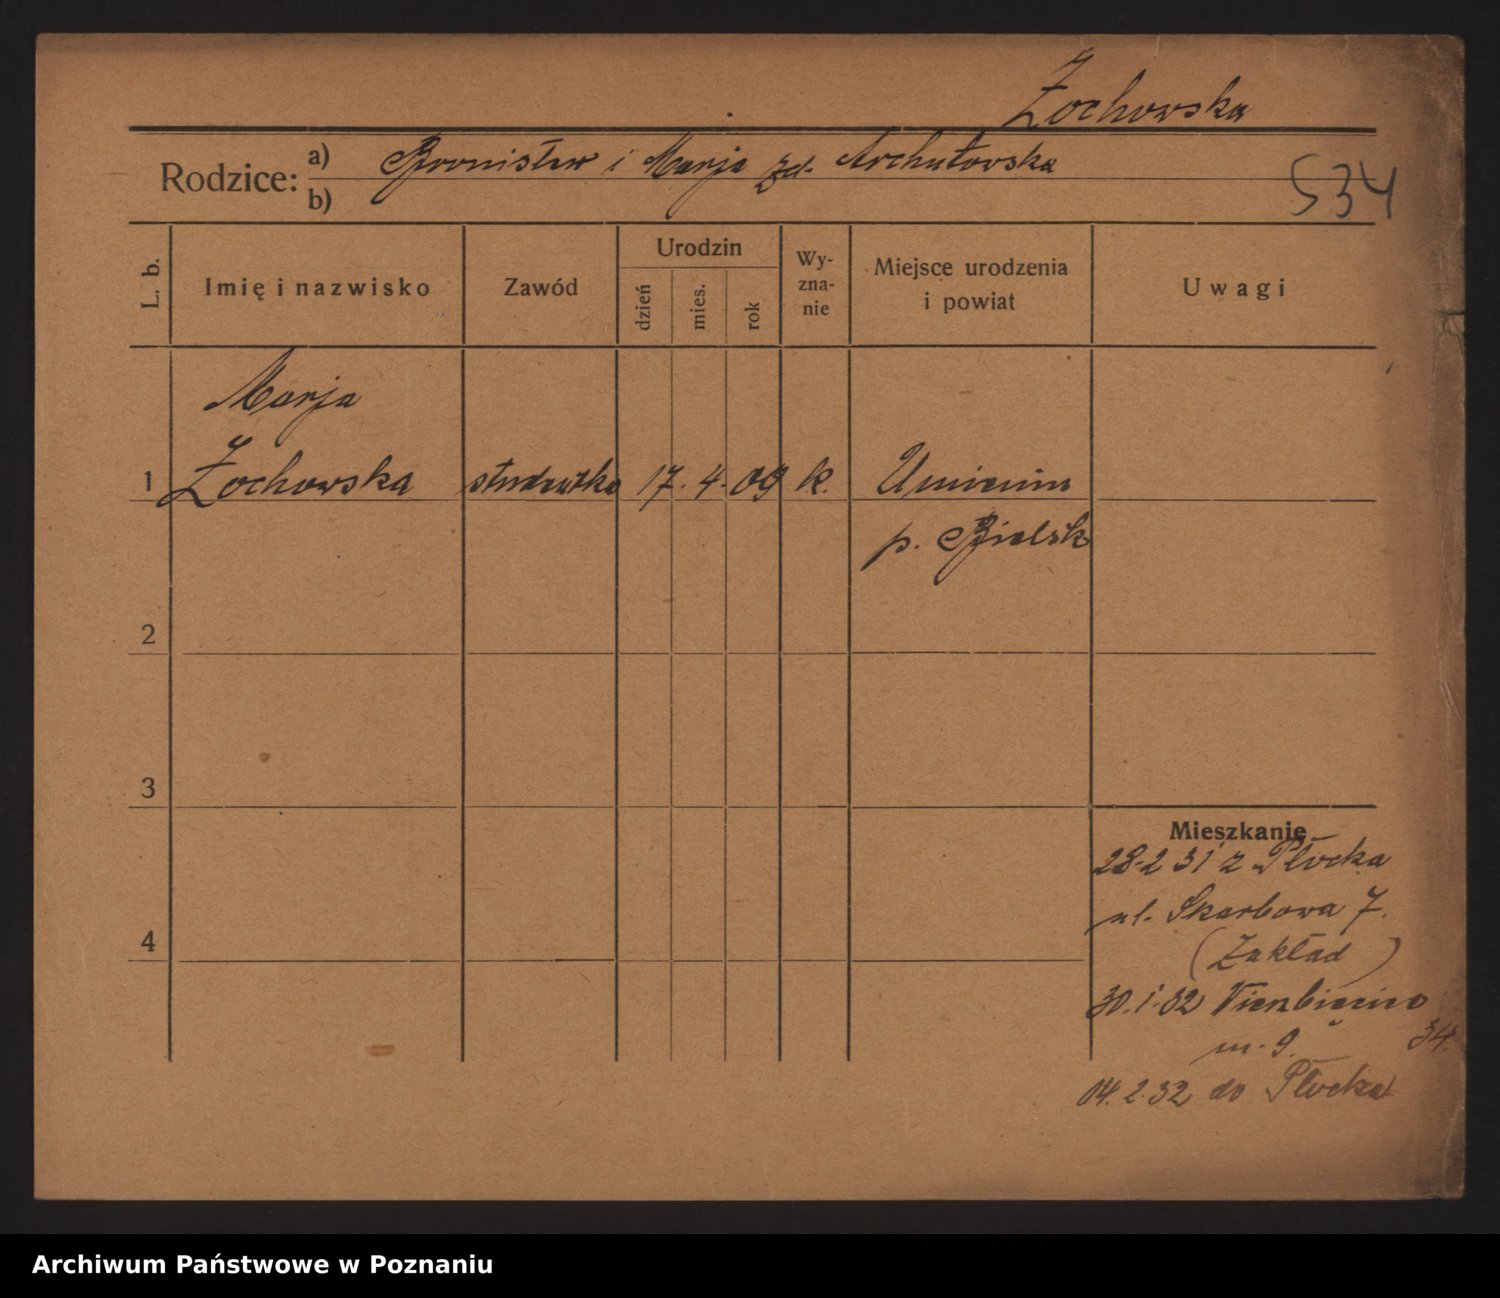 Żochowska
Rodzice: a) Bronisław i Marja zd. Archutowska
b)
534
L. b.
Imię i nazwisko
Zawód
Urodzin
dzień
mies.
rok
Wy-
zna-
nie
Miejsce urodzenia
i powiat
Uwagi
Marja
1 Żochowska studentka 17. 4. 09 k.
p. Bielsk
2
3
4
Mieszkanie
28-2 31 z Płocka
ul. Skarbowa 7.
(Zakład)
30.1.32 Wierzbięcice
34.
m. 9.
04.2.32 do Płocka
Archiwum Państwowe w Poznaniu